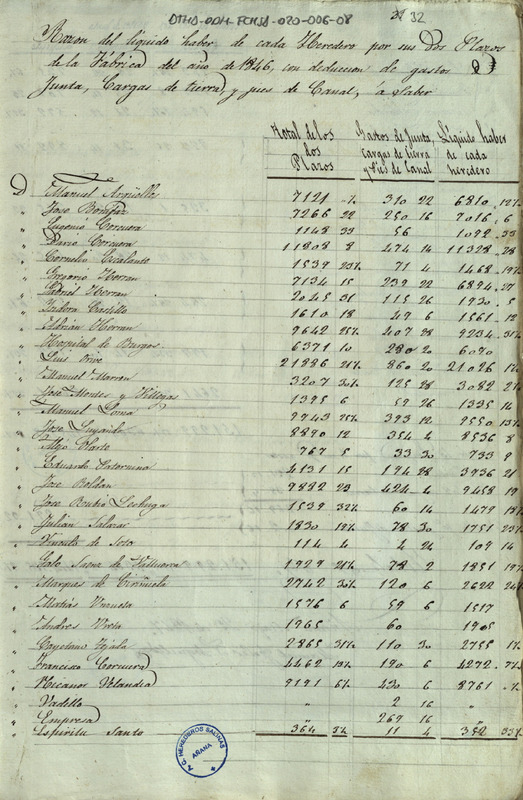 DTHD-ODH-FCHSA-020-006-08
31 32
Razon del líquido haber de cada Heredero por sus Dos Plazos
de la Fábrica del año de 1846, con deduccion de gastos de
Junta, Cargas de tierra, y pies de Canal, a Saber
Total de los dos Plazos
Gastos de Junta, cargas de tierra y pies de Canal
Líquido haber de cada heredero
D Manuel Argüelles 7121 310 22 6810
" José Bonifaz 7266 22 250 16 7016 6
" Eugenio Corcuera 1148 33 56 1092 33
" Dario Corcuera 11808 8 474 14 11328 28
" Cornelio Escalante 1539 71 4 1468
" Gregorio Herran 7134 15 239 22 6894 27
" Gabriel Herran 2045 31 115 26 1930 5
" Isidora Castillo 1610 18 49 6 1561 12
" Adrian Herran 9642 407 28 9234
" Hospital de Burgos 6371 10 280 20 6090
" Luis Orive 21886 860 20 21026
" Manuel Marron 3207 125 28 3082
" José Montes y Villojas 1395 6 59 26 1335 14
" Manuel Loma 9943 393 12 9550
" José Luyando 8890 12 354 4 8536 8
" Alejo Olarte 767 5 33 30 733 9
" Eduardo Paternina 4131 15 194 28 3936 21
" José Roldan 9882 23 424 6 9458
" José Rubio Lechuga 1539 60 14 1479
" Julian Salazar 1830 78 30 1751
" Vínculo de Soto 114 4 4 24 109 14
" Galo Saenz de Villuerca 1929 78 2 1851
" Marques de Ciriñuela 2742 120 6 2622
" Matías Unzueta 1576 6 59 6 1517
" Andres Urria 1965 60 1905
" Cayetano Zejala 2865 110 30 2755
" Francisco Corcuera 4462 190 6 4272
" Nicanor Velandia 9191 430 6 8761
" Vadillo " 2 16 "
" Empresa " 269 16 "
" Espiritu Santo 364 11 4 352
A.C. HEREDEROS SALINAS
AÑANA